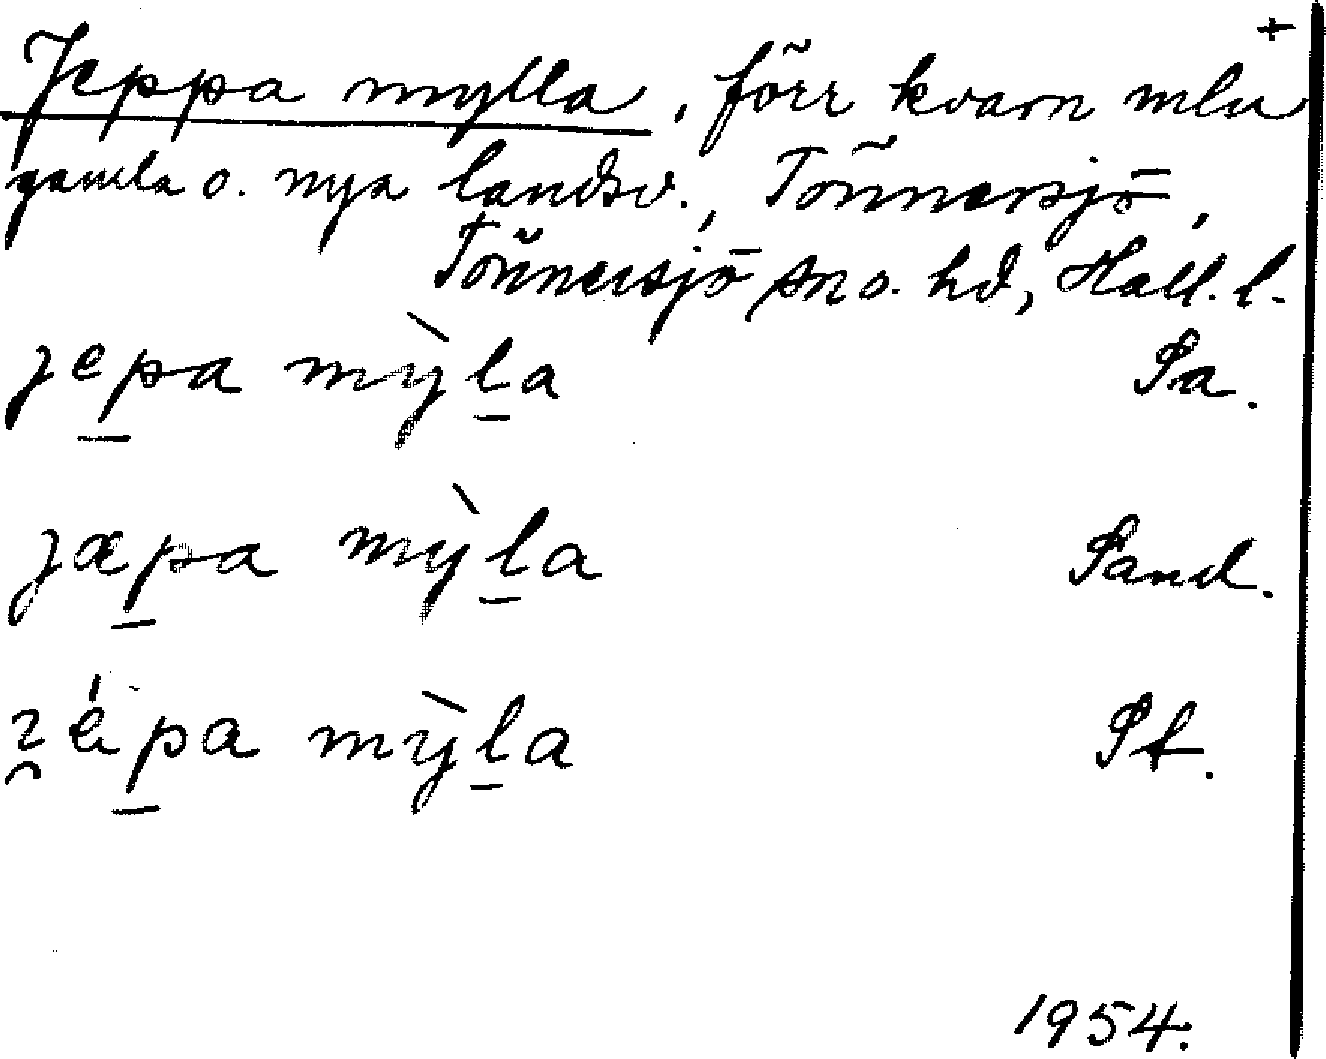 +
Jeppa mylla, förr kvarn mln
gamla o. nya landsv., Tönnersjö,
Tönnersjö sn o. hd, Hall. l.
jep̲a mỳl̲a Pa.
jæp̲a mỳl̲a Pand.
mỳl̲a Pf.
1954.